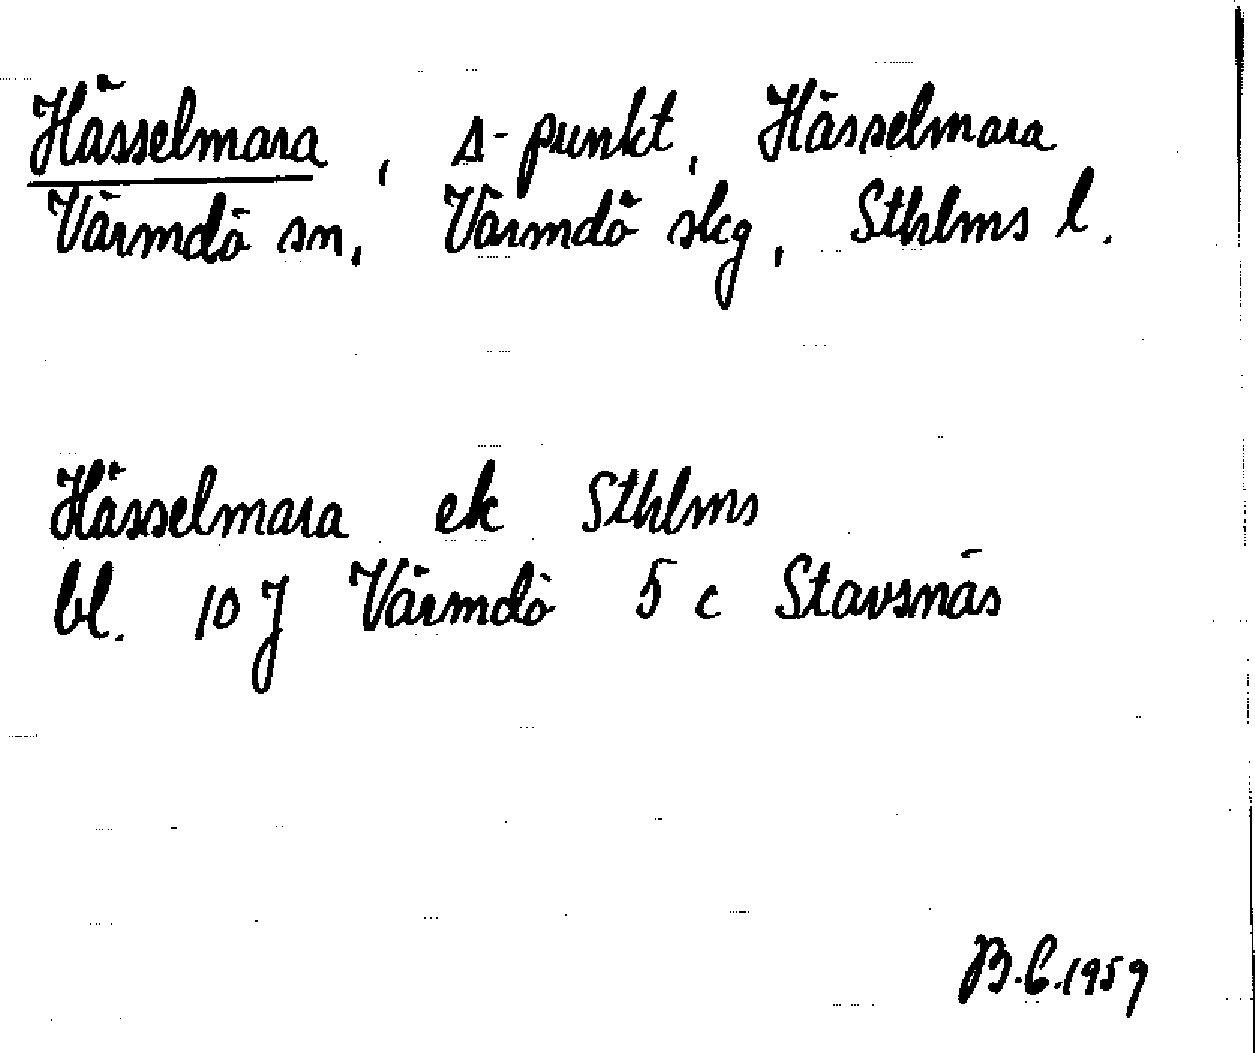 Hässelmara, Δ-punkt, Hässelmara
Värmdö sn, Värmdö skg, Sthlms l.
Hässelmara ek Sthlms
bl. 10 J Värmdö 5 c Stavsnäs
B.C.1959